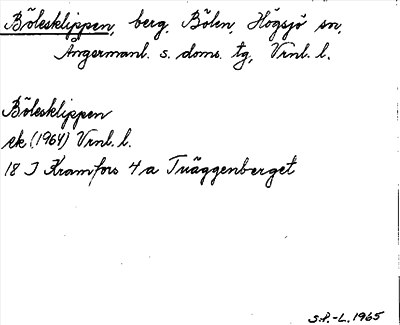 Bölesklippen, berg, Bölen, Högsjö sn,
Ångermanl. s. doms. tg, Vrnl. l.
Bölesklippen
ek (1964) Vrnl. l.
18 I Kramfors 4 a Tväggenberget
S.P.-L. 1965